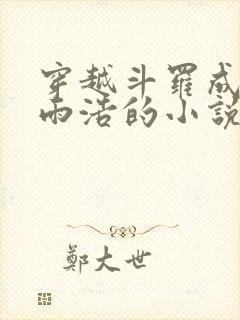 穿越斗羅成
雨浩的小說
鄭大世